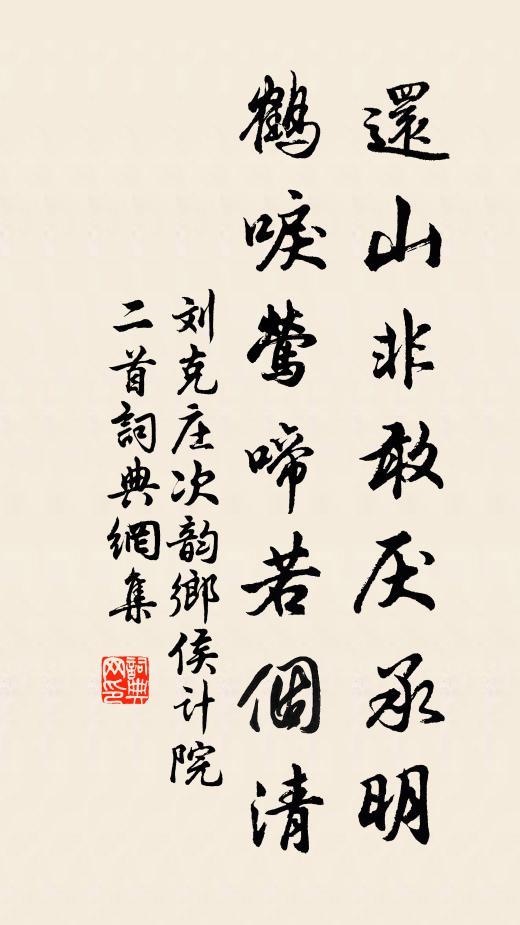 還山非敢厌承明
鶴唳莺啼若個清
刘克庄次韵鄉侯计院
二首詞典網集
詞典网印